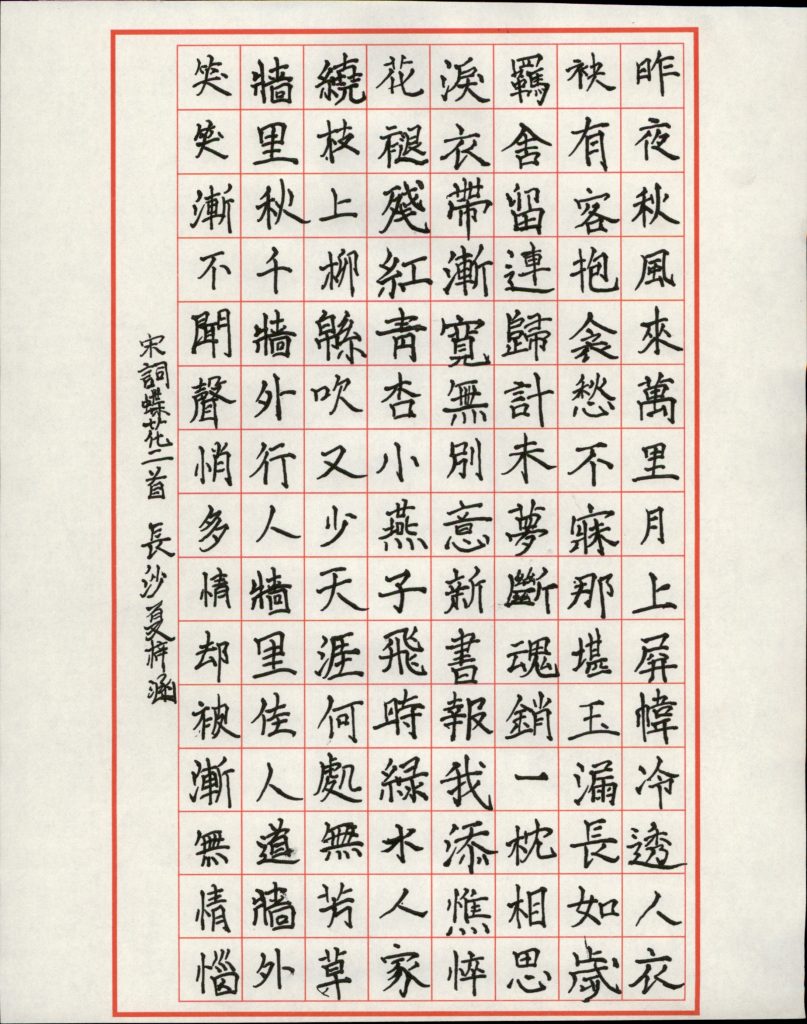 昨夜秋風來萬里月上屏幃冷透人衣
袂有客抱衾愁不寐那堪玉漏長如歲
羈舍留連歸計未夢斷魂銷一枕相思
淚衣帶漸寬無別意新書報我添憔悴
花褪殘紅青杏小燕子飛時緑水人家
繞枝上柳緜吹又少天涯何處無芳草
牆里秋千牆外行人牆里佳人道牆外
笑笑漸不聞聲悄多情却被漸無情惱
宋詞蝶花二首 長沙夏梓涵